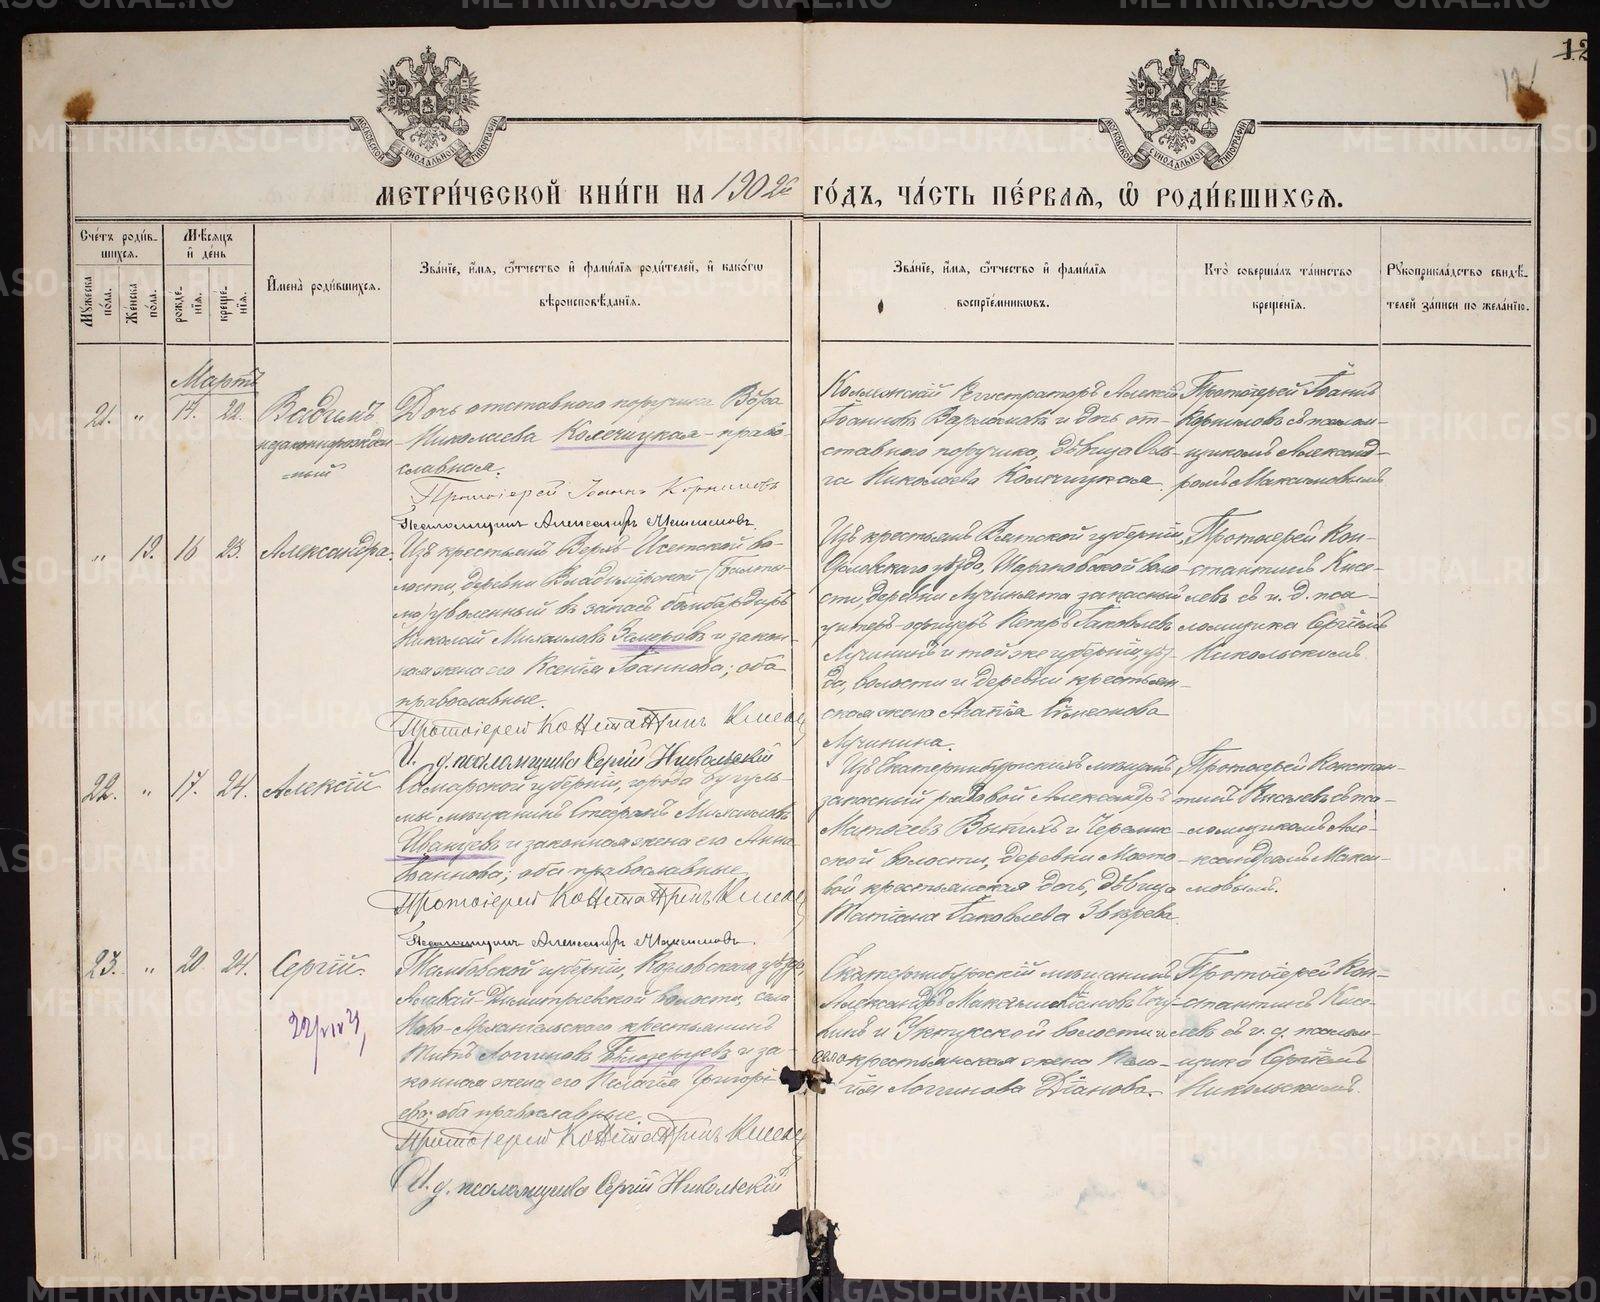 12
МОСКОВСКОЙ СѴНОДАЛЬНОЙ ТИПОГРАФІИ
МОСКОВСКОЙ СѴНОДАЛЬНОЙ ТИПОГРАФІИ
МЕТРИ́ЧЕСКОЙ КНИ́ГИ НА 1902й ГО́ДЪ, ЧА́СТЬ ПЕ́РВАѦ, Ѽ РОДИ́ВШИХСѦ.
Сче́тъ роди́в-
шихся.
Мѣ́сяцъ
и҆ де́нь
Мꙋ́жеска по́ла.
Же́нска по́ла.
рожде́-
нїя.
креще́-
нїя.
И҆мена̀ роди́вшихся.
Зва́нїе, и҆́мя, ѻ҆́тчество и҆ фами́лїя роди́телей, и҆ како́гѡ
вѣроисповѣ́данїя.
Зва́нїе, и҆́мя, ѻ҆́тчество и҆ фами́лїя
воспрїе́мникѡвъ.
Кто̀ соверша́лъ та́инство
креще́нїя.
Рꙋкоприкла́дство свидѣ́-
телей за́писи по жела́нїю.
Мартъ
21. " 14. 22. Вадимъ
незаконнорожден
-ный
Дочь отставного поручика Вѣра
Николаева Колечицкая - право-
славная.
Протоіерей Іоаннъ Корниловъ
Псаломщикъ Александръ Максимовъ.
Коллежскій Регистраторъ Алексѣй
Іоанновъ Варламовъ и дочь от-
ставного поручика, дѣвица Оль-
га Николаева Колечицкая.
Протоіерей Іоаннъ
Корниловъ съ псалом-
щикомъ Александ-
ромъ Максимовымъ
" 13. 16 23. Александра.
Изъ крестьянъ Верхъ-Исетской во-
лости, деревни Владимірской /Балты-
ма/ уволенный въ запасъ бомбардиръ
Николай Михаиловъ Земеровъ и закон-
ная жена его Ксенія Іоаннова; оба
православные.
Протоіерей Константинъ Киселевъ
И. д. псаломщика Сергій Никольскій
Изъ крестьянъ Вятской губерніи,
Орловскаго уѣзда, волости, деревни Лучината запасный
унтеръ-офицеръ Петръ Іаковлевъ
Лучининъ и той же губерніи, уѣз-
да, волости и деревни крестьян-
ская жена Агапія Симеонова
Лучинина.
Протоіерей Кон-
стантинъ Кисе-
левъ съ и. д. пса-
ломщика Сергіемъ
Никольскимъ.
22. " 17. 24. Алексій
Самарской губерніи, города Бугуль-
мы мѣщанинъ Стефанъ Михаиловъ
Иванцевъ и законная жена его Анна
Іоаннова; оба православные.
Протоіерей Константинъ Киселевъ
Псаломщикъ Александръ Максимовъ.
Изъ Екатеринбургскихъ мѣщанъ
запасный рядовой Александръ
Матѳеевъ Выпихъ и
ской волости, деревни Мосто-
вой крестьянская дочь, дѣвица
Татіана Іаковлева Звѣрева.
Протоіерей Констан-
тинъ Киселевъ съ пса-
ломщикомъ Але-
ксандромъ Макси-
мовымъ.
23. " 20 24. Сергій.
Тамбовской губерніи, Козловскаго уѣзда,
Алавай-Димитріевской волости, села
Ново-Архангельскаго крестьянинъ
Титъ Логиновъ Бѣлозерцевъ и за-
конная жена его Пелагія Григорі-
ева; оба православные.
Протоіерей Константинъ Киселевъ
И. д. псаломщика Сергій Никольскій
Екатеринбургскій мѣщанинъ
Александръ Максимиліановъ
и Уктусской волости и
села крестьянская жена Пела-
гія Логинова Діанова.
Протоіерей Кон-
стантинъ Кисе-
левъ съ и. д. псалом-
щика Сергіемъ
Никольскимъ.
METRIKI.GASO-URAL.RU